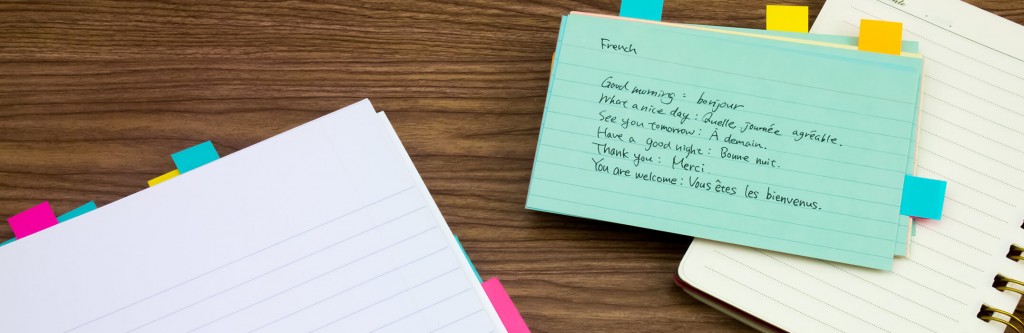 French
Good morning = bonjour
What a nice day : Quelle journée agréable.
See you tomorrow : À demain.
Have a good night : Bonne nuit.
Thank you : Merci.
You are welcome : Vous êtes les bienvenus.